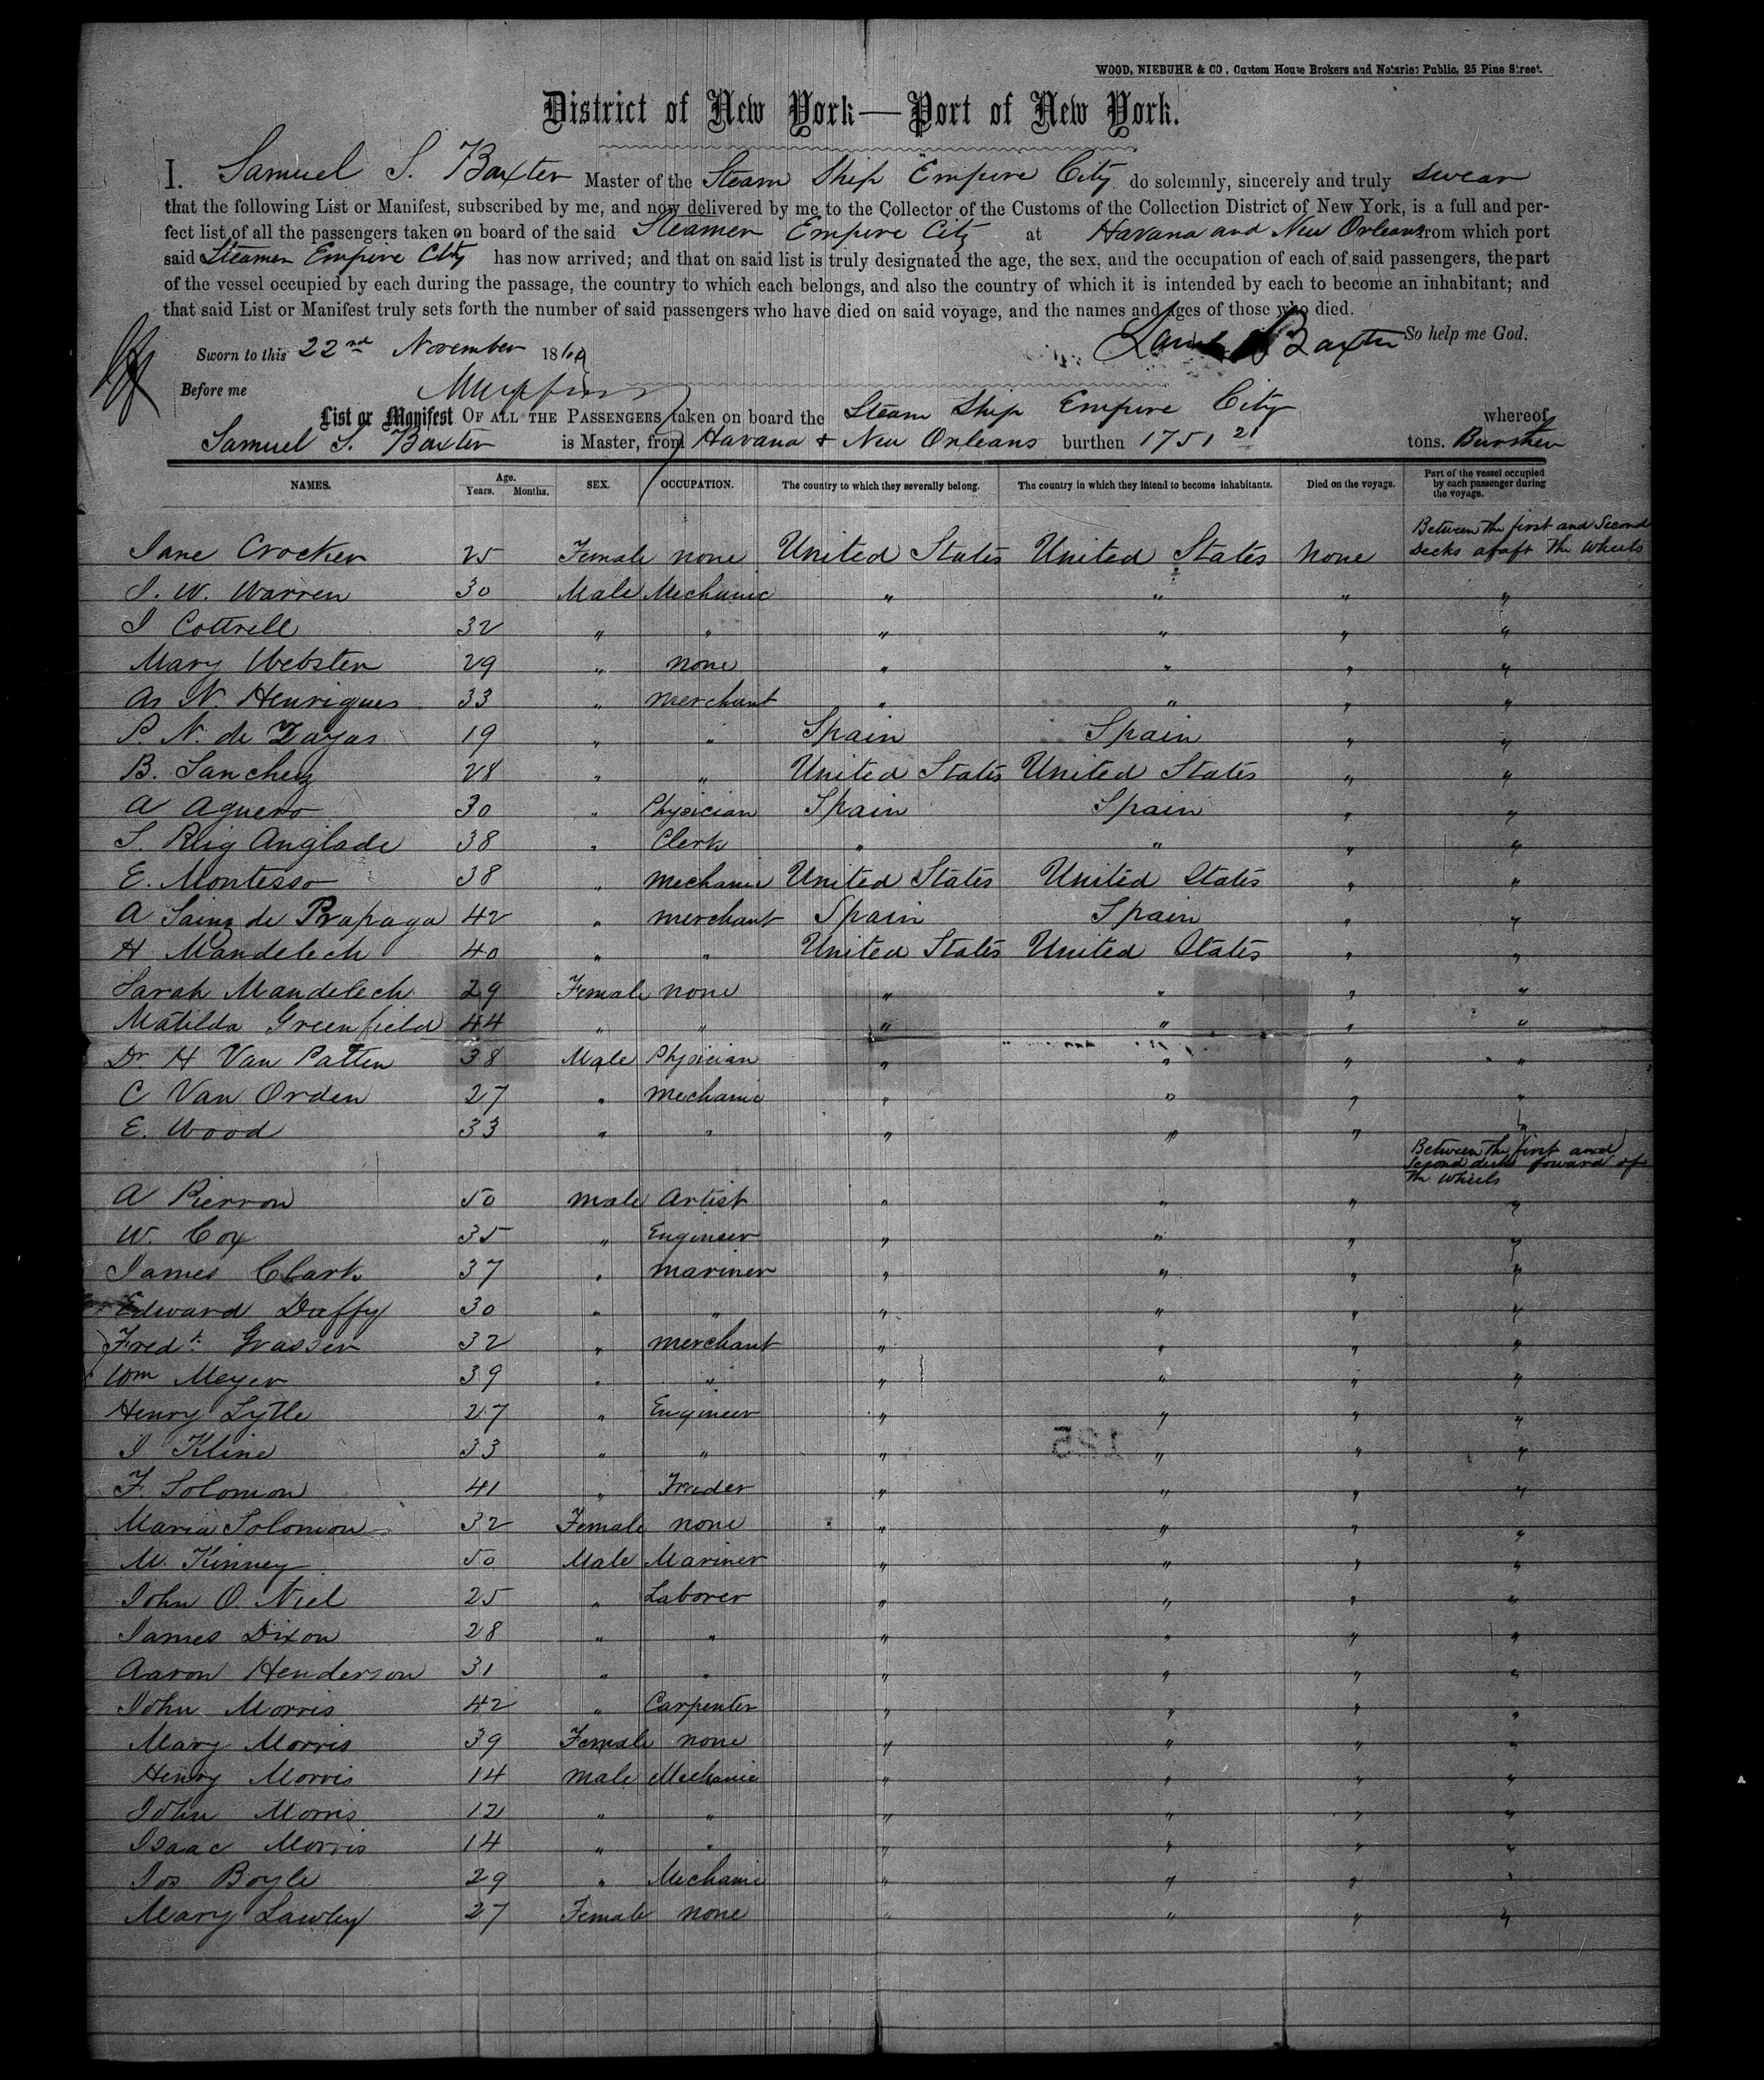 WOOD, NIEBUHR & CO, Custom House Brokers and Notaries Public, 25 Pine Street.
District of New York—Port of New York.
I. Samuel S. Baxter Master of the Steam Ship Empire City do solemnly, sincerely and truly swear
that the following List or Manifest, subscribed by me, and now delivered by me to the Collector of the Customs of the Collection District of New York, is a full and per-
fect list of all the passengers taken on board of the said Steamer Empire City at Havana and New Orleans from which port
said Steamer Empire City has now arrived; and that on said list is truly designated the age, the sex, and the occupation of each of said passengers, the part
of the vessel occupied by each during the passage, the country to which each belongs, and also the country of which it is intended by each to become an inhabitant; and
that said List or Manifest truly sets forth the number of said passengers who have died on said voyage, and the names and ages of those who died.
Baxter So help me God.
Sworn to this 22nd November 1860
Before me
List or Manifest OF ALL THE PASSENGERS taken on board the Steam Ship Empire City whereof
Samuel S. Baxter is Master, from Havana & New Orleans burthen 1751 tons.
NAMES. Age. Years. Months. SEX. OCCUPATION. The country to which they severally belong. The country in which they intend to become inhabitants. Died on the voyage. Part of the vessel occupied by each passenger during the voyage.
Between the first and Second
Jane Crocker 25 Female none United States United States None Decks abaft the Wheels
S. W. Warren 30 Male Mechanic " " " "
J Cottrell 32 " " " " " "
Mary Webster 29 " none " " " "
N. Henriques 33 " merchant " " " "
P. N. de Zayas 19 " " Spain Spain " "
B. Sanchez 28 " " United States United States " "
A Aguero 30 " Physician Spain Spain " "
S. Reig Anglade 38 " Clerk " " " "
E. Montesso 38 " mechanic United States United States " "
A Sainz de Prapaga 42 " merchant Spain Spain " "
H Mandelech 40 " " United States United States " "
Sarah Mandelech 29 Female none " " " "
Matilda Greenfield 44 " " " " " "
Dr H Van Patten 38 Male Physician " " " "
C Van Orden 27 " mechanic " " " "
E. Wood 33 " " " " " "
Between the first and
Second decks forward of
the Wheels
A Pierron 50 male Artist " " " "
W. Cox 35 " Engineer " " " "
James Clark 37 " mariner " " " "
Edward Duffy 30 " " " " " "
Fredk Grasser 32 " merchant " " " "
Wm Meyer 39 " " " " " "
Henry Lytle 27 " Engineer " " " "
J Kline 33 " " " " " "
F. Solomon 41 " Trader " " " "
Maria Solomon 32 Female none " " " "
M. Kinney 50 Male Mariner " " " "
John O. Niel 25 " Laborer " " " "
James Dixon 28 " " " " " "
Aaron Henderson 31 " " " " " "
John Morris 42 " Carpenter " " " "
Mary Morris 39 Female none " " " "
Henry Morris 14 male Mechanic " " " "
John Morris 12 " " " " " "
Isaac Morris 14 " " " " " "
Jos Boyle 29 " Mechanic " " " "
Mary Lawley 27 Female none " " " "